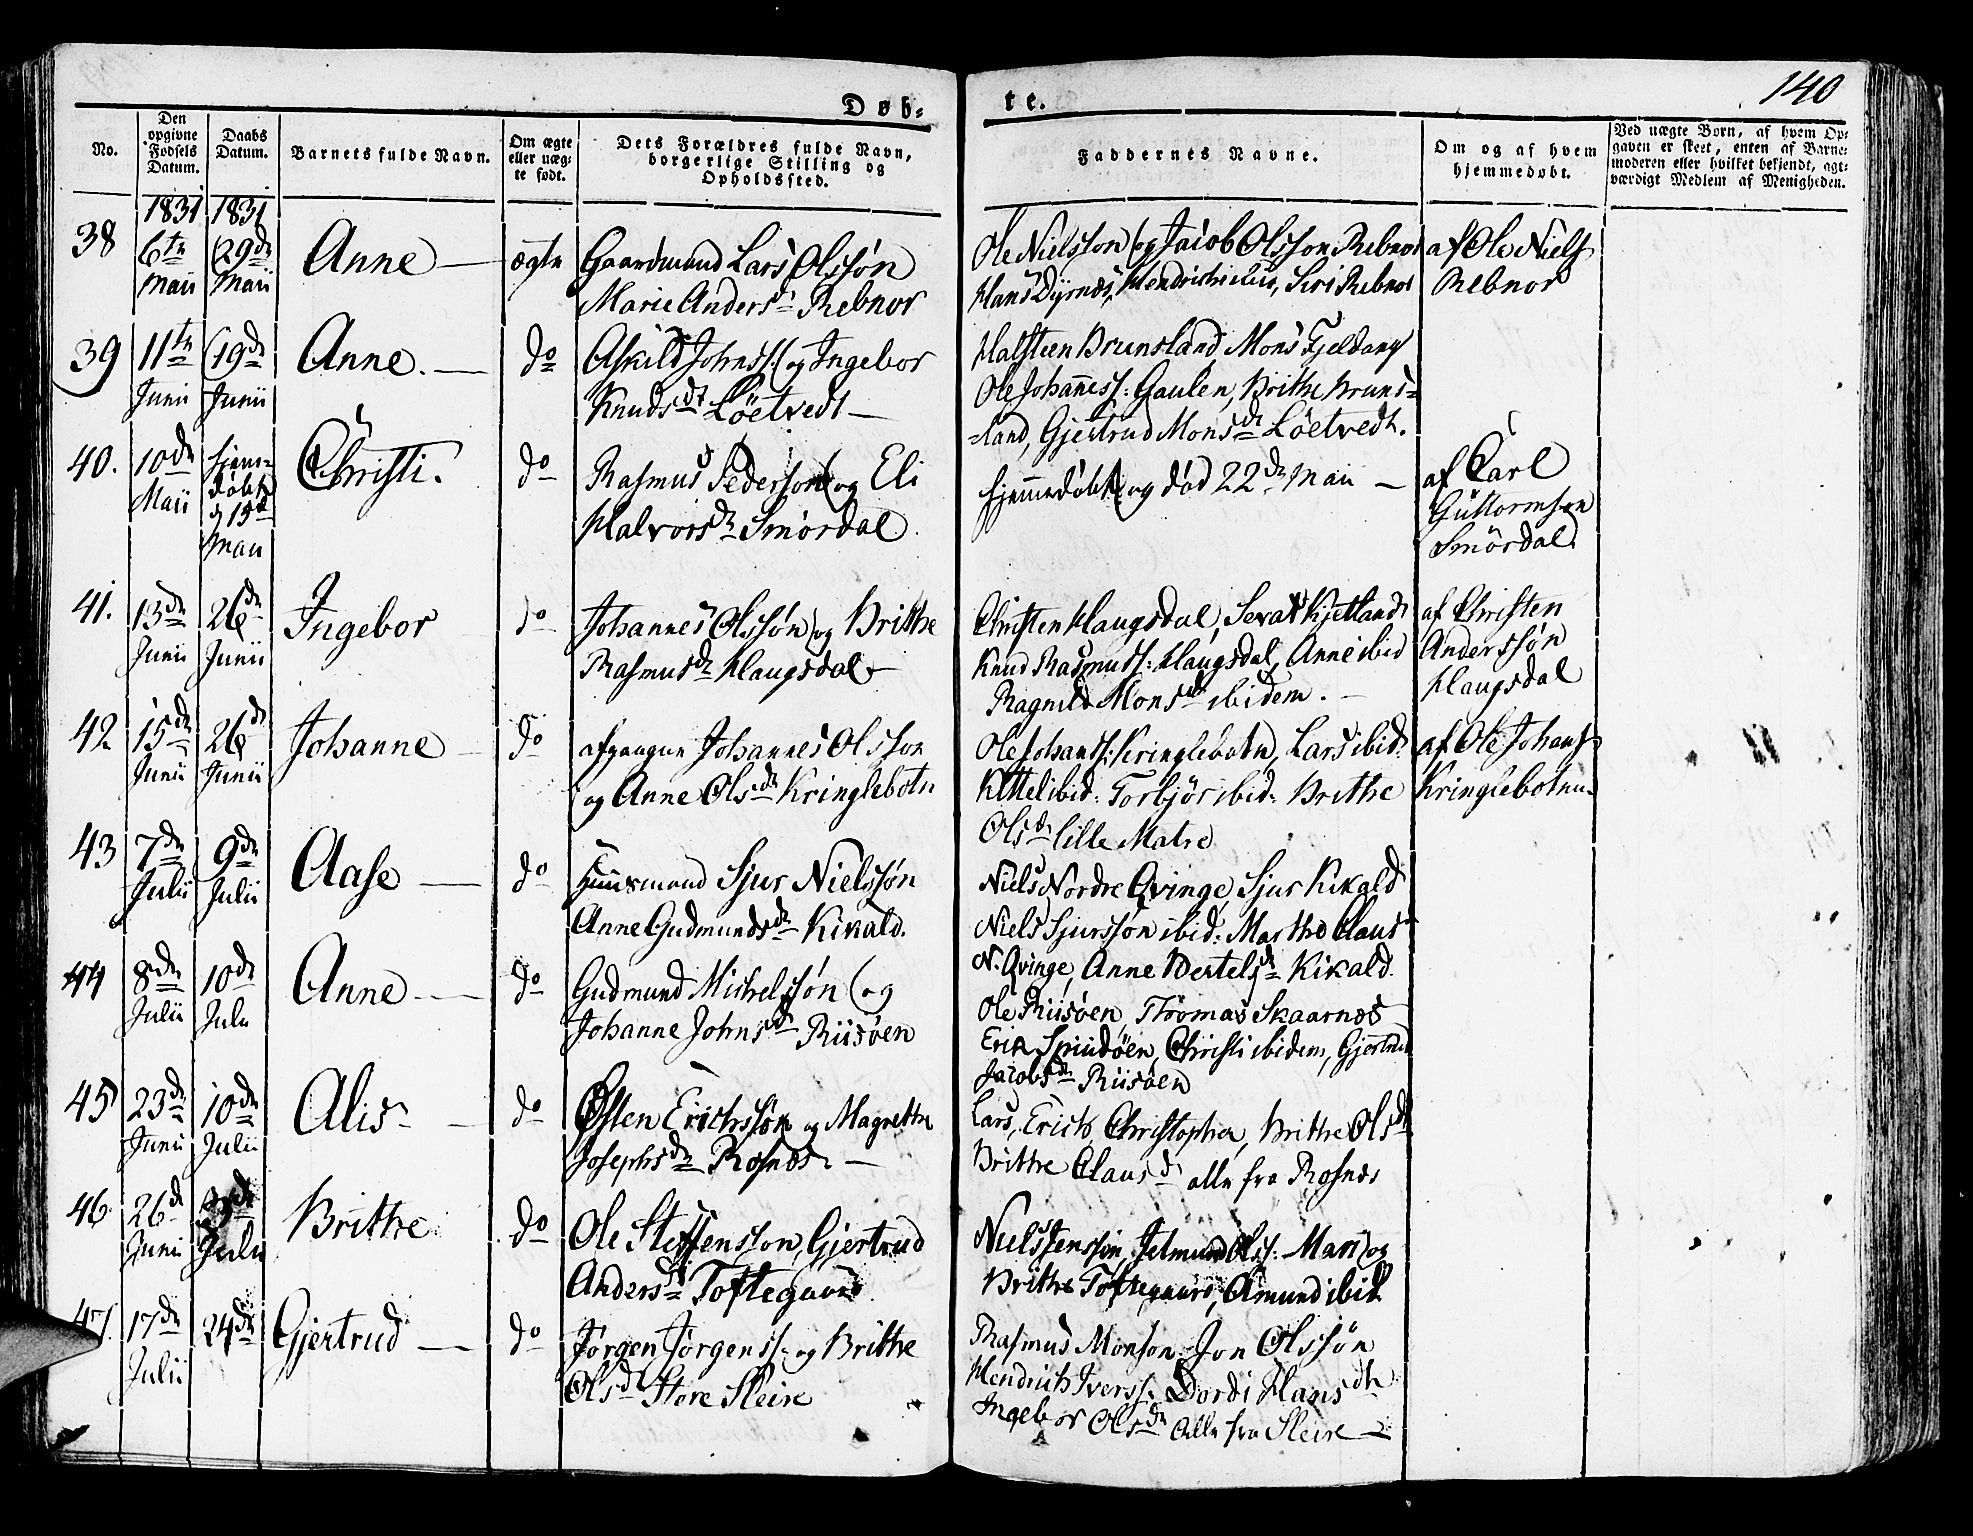 140
Døb-
te.
No.
Den opgivne Fødsels Datum.
Daabs Datum.
Barnets fulde Navn.
Om ægte eller uægte født.
Dets Forældres fulde Navn, borgerlige Stilling og Opholdssted.
Faddernes Navne.
Om og af hvem hjemmedøbt.
Ved uægte Børn, af hvem Opgaven er skeet, enten af Barnemoderen eller hvilket bekjendt, agtværdigt Medlem af Menigheden.
1831 1831
38 6te Maii 29de Maii Anne ægte
Gaardmand Lars Olssøn
Marie Andersd: Rebnor
Ole Nielsson og Jacob Olsson Rebnor
Hans Dyrnæs, Siri Rebnor
af Ole Niels
Rebnor
39 11te Junii 19de Junii Anne. do
Askild Johnss: og Ingebor
Knudsdt Löetvedt
Halsteen Brunsland, Mons Fjeldang
Ole Johanness: Gaulen, Brithe Bruns=
=land, Gjertrud Monsdt Löetvedt.
40. 10de Maii hjemdøbt d 15d Maii Christi. do
Rasmus Pederson og Eli
Halvorsdr Smørdal
hjemmedøbt og død 22de Maii
af Carl
Guttormson
Smørdal
41. 13de Junii 26de Junii Ingebor do
Johannes Olssøn og Brithe
Rasmusdr Haugsdal
Christen Haugsdal, Sevat Kjetland
Knud Rasmuss: Haugsdal, Anne ibid
Ragnild Monsdr ibidem.
af Christen
Anderssøn
Haugsdal
42 15de Junii 26de Junii Johanne do
afgangne Johannes Olsson
og Anne Olsdr Kringlebotn
Ole Johanss: Kringlebotn, Lars ibid:
Kittel ibid: Torbjør ibid: Brithe
Olsdr lille Matre
af Ole Johans
Kringlebotn
43 7de Julii 9de Julii Aase do
Huusmand Sjur Nielssøn
Anne Gudmundsdr Kikald.
Niels Nordre Qvinge, Sjur Kikald
Niels Sjurssøn ibid: Marthe Claus
N. Qvinge, Anne Bertelsdr Kikald.
44 8de Julii 10de Juli Anne do
Gudmund Michelssøn og
Johanne Johnsdr Riisøen
Ole Riisøen, Thomas Skaarnæs
Erik, Christi ibidem, Gjertrud
Jacobsdr Riisøen
45 23de Junii 10de Julii Alis do
Østen Erichssøn og Magrethe
Josephsdr Rosnæs
Lars, Erich, Christopher, Brithe Olsdr
Brithe Clausd alle fra Rosnæs
46 26d Junii 3de Julii Brithe do
Ole Steffensson, Gjertrud
Andersdr Toftegaard
Niels Jensson, Jetmund Olss: Mari og
Brithe Toftegaard, Amund ibid
47. 17de Julii 24de Gjertrud do
Jørgen Jørgenss: og Brithe
Olsd Store Sleire
Rasmus Monson Jon Olssøn
Hendrich Iverss: Dordi Hansdtr
Ingebor Olsdr alle fra Sleire